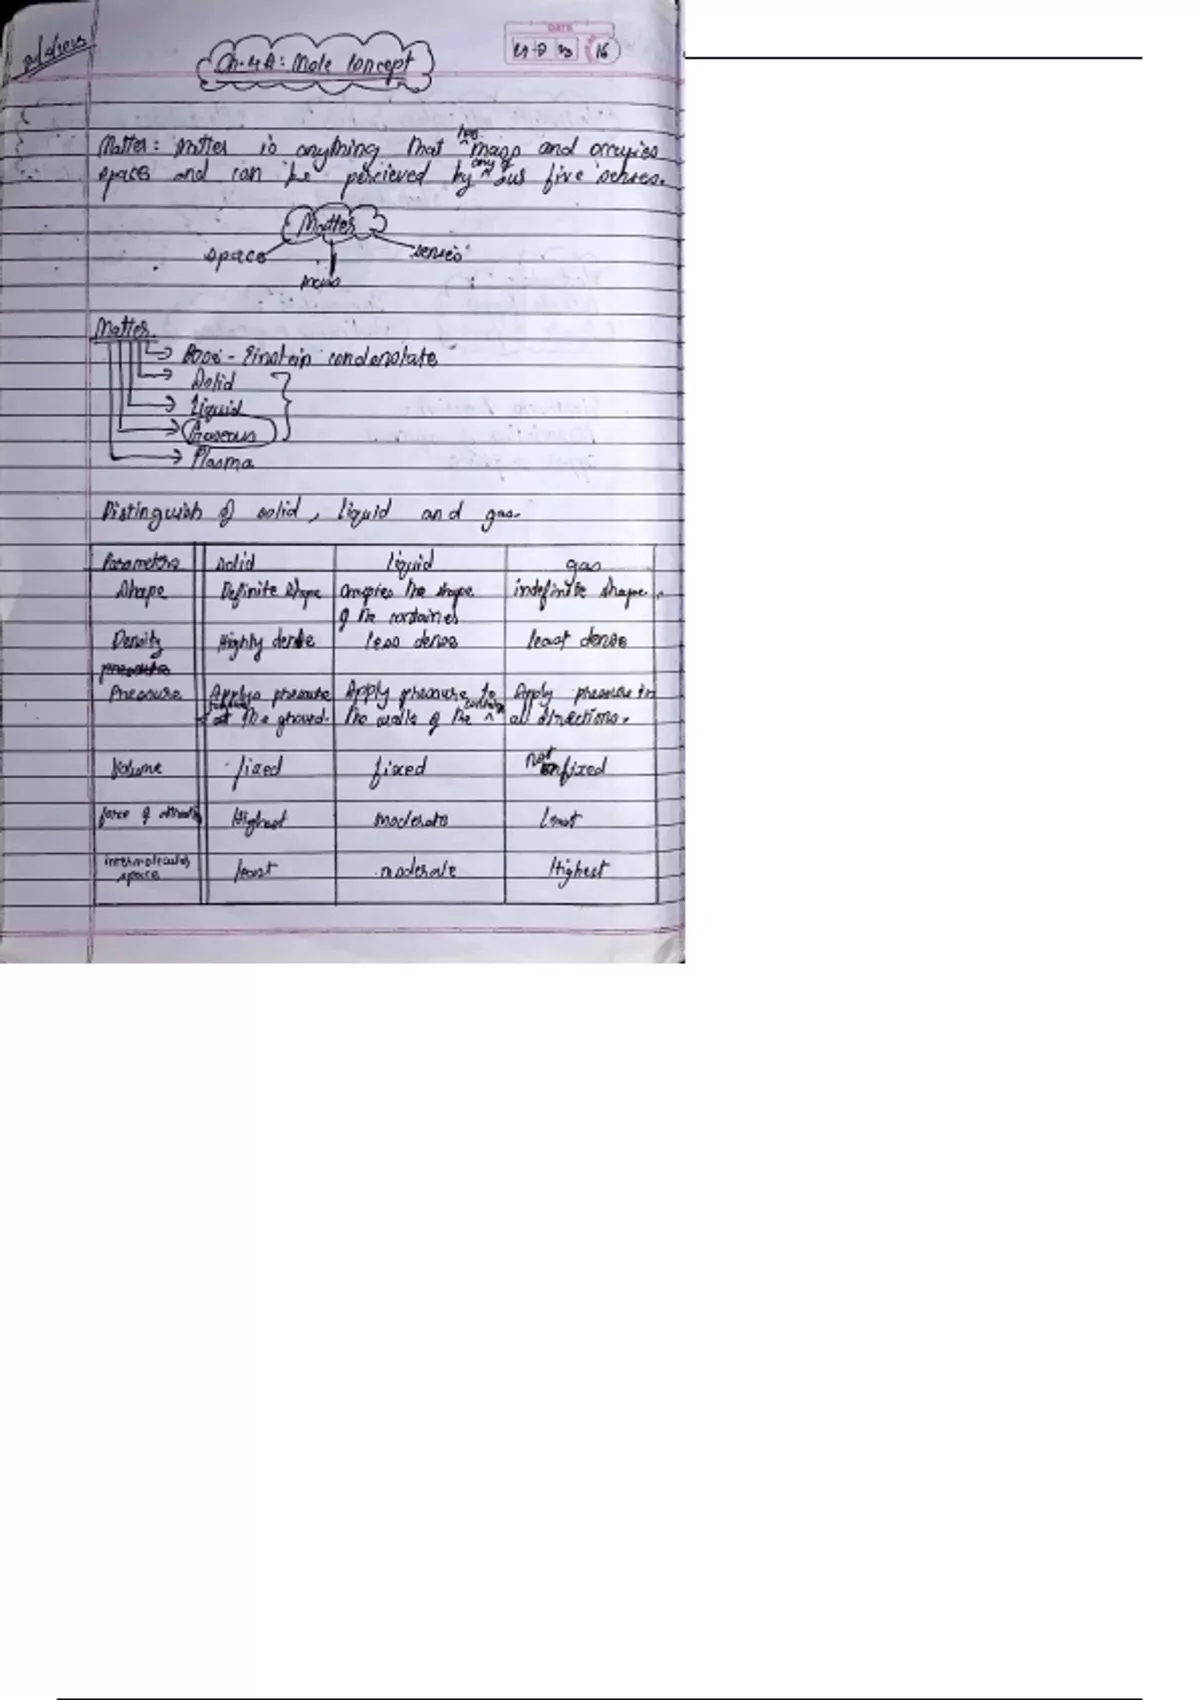 DATE
16
Ch-4A: Mole Concept
Matter: Matter is anything that has mass and occupies
space and can be percieved by any of our five senses.
Matter
space
senses
mass
Matter
Bose - Einstein condensate
Solid
Liquid
Gaseous
Plasma
Distinguish of solid, liquid and gas.
Parameters Solid liquid gas
Shape Definite shape occupies the shape indefinite shape.
of the container
Density Highly dense less dense least dense
pressure
Pressure Applys pressure Apply pressure to Apply pressure in
at the ground. the walls of the container all directions.
Volume fixed fixed not fixed
force of attraction Highest moderate least
intermolecular
space least moderate Highest